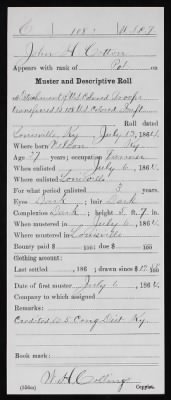 C 108 U.S.C.T.
John H. Cotton
Appears with rank of Pvt. on
Muster and Descriptive Roll
of Detachment of U.S. Colored Troops
transferred to 108 U.S. Colored Inft.
Roll dated
Louisville, Ky. July 17, 1864.
Where born Nelson Ky.
Age 27 years; occupation Farmer
When enlisted July 6, 1864.
Where enlisted Louisville
For what period enlisted 3 years.
Eyes Dark; hair Dark
Complexion Dark; height 5 ft. 7 in.
When mustered in July 6, 1864.
Where mustered in Louisville
Bounty paid $ 100; due $ 100
Clothing account:
Last settled , 186 ; drawn since $
Date of first muster July 6, 1864.
Company to which assigned
Remarks:
Credited to 5. Cong Dist Ky.
Book mark:
W.H. Collings
(356a) Copyist.